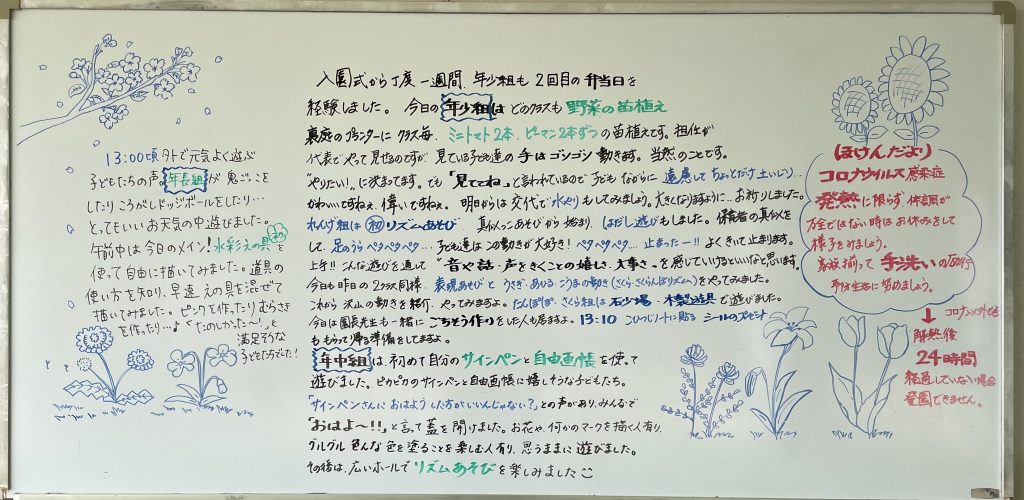 13:00頃 外で元気よく遊ぶ
子どもたちの声。年長組が 鬼ごっこを
したり ころがしドッジボールをしたり…
とってもいいお天気の中遊びました。
午前中は今日のメイン!水彩えの具 初 を
使って自由に描いてみました。道具の
使い方を知り、早速 えの具を混ぜて
描いてみました。ピンクを作ったり むらさき
を作ったり…♪ 「たのしかった〜!」と
満足そうな
子どもたちでした!
入園式から丁度一週間、年少組も 2回目の弁当日を
経験しました。 今日の 年少組は どのクラスも 野菜の苗植え
裏庭のプランターに クラス毎、ミニトマト2本、ピーマン2本ずつの苗植えです。担任が
代表でやって見せるのですが 見ている子ども達の手はゴソゴソ動きます。当然のことです。
"やりたい!"に決まってます。でも「見ててね」と言われているので子どもながらに遠慮してちょっとだけ土いじり…
かわいいですねぇ、偉いですねぇ。明日からは交代で水やりもしてみましょう。大きくなりますように…とお祈りしました。
れんげ組は 初 リズムあそび 真似っこあそびから始まり、はだし遊びもしました。保育者の真似を
して、足のうら ペタペタペタ… 子ども達はこの動きが大好き! ペタペタペタ… 止まったー!! よくきいて止まります。
上手!! こんな遊びを通して "音や話・声をきくことの嬉しさ、大事さ"を感じていけるといいなと思います。
今日も昨日の2クラス同様、表現あそびと うさぎ・あひる・こうまの動き(さくら・さくらんぼリズム)をやってみました。
これから 沢山の動きを紹介、やってみますよ。たんぽぽ・さくら組は 砂場・木製遊具で遊びました。
今日は園長先生も一緒に ごちそう作りをした人も居ますよ。13:10 こひつじノートに貼る シールのプレゼント
ももらって帰る準備をしてますよ。
年中組は、初めて自分のサインペンと自由画帳を使って
遊びました。ピカピカのサインペンと自由画帳に嬉しそうな子どもたち。
「サインペンさんに おはよう した方がいいんじゃない?」との声があり、みんなで
「おはよ〜!!」と言って蓋を開けました。お花や、何かのマークを描く人有り、
グルグル 色んな色を塗ることを楽しむ人有り、思うままに遊びました。
その後は、広いホールで リズムあそびを楽しみました
(ほけんだより)
コロナウイルス感染症
発熱に限らず、体調が
万全ではない時はお休みをして
様子をみましょう。
家族揃って 手洗いの励行
予防生活に努めましょう。
コロナ以外でも
解熱後
24時間
経過していない場合
登園できません。